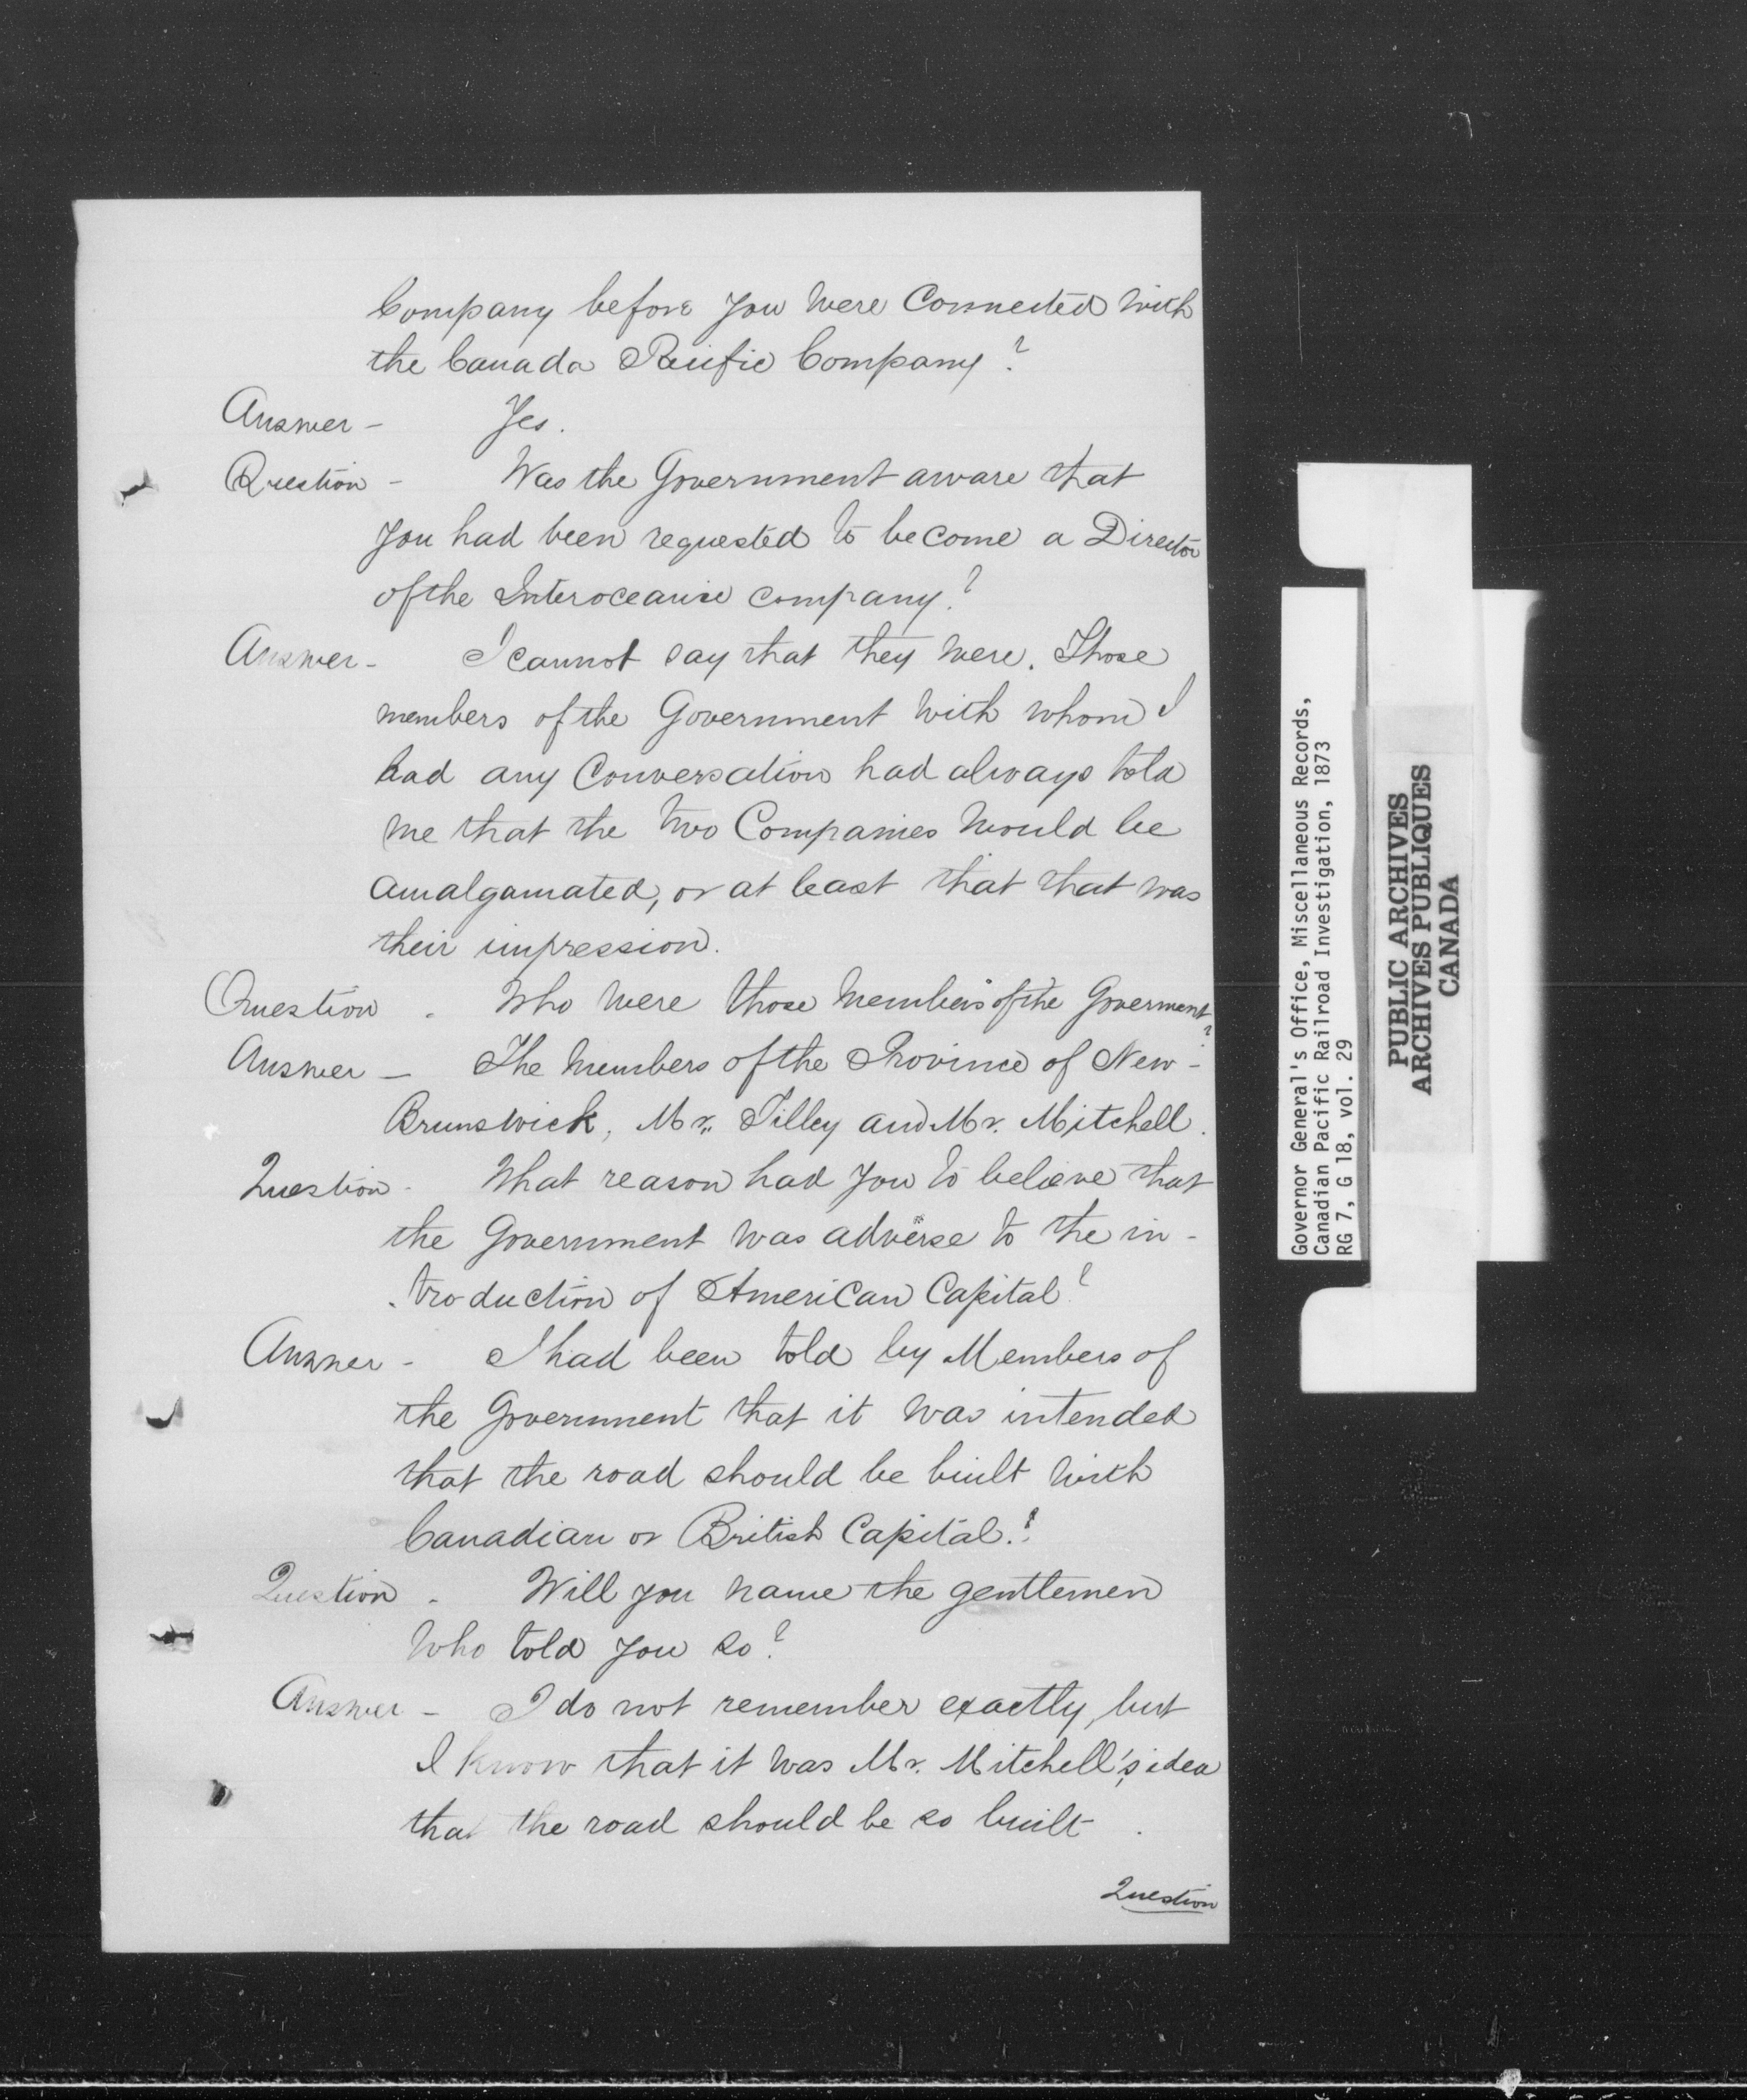 Company before you were Connected with
the Canada Pacific Company?
Answer - Yes.
Question - Was the Government aware that
you had been requested to become a Director
of the Interoceanic company?
Answer - I cannot say that they were. Those
members of the Government with whom I
had any Conversation had always told
me that the two Companies would be
amalgamated, or at least that that was
their impression.
Question - Who were those members of the Goverment?
Answer - The members of the Province of New-
Brunswick, Mr. Tilley and Mr. Mitchell.
Question - What reason had you to believe that
the Government was adverse to the in-
troduction of American Capital?
Answer - I had been told by Members of
the Government that it was intended
that the road should be built with
Canadian or British Capital.
Question - Will you name the gentlemen
who told you so?
Answer - I do not remember exactly, but
I know that it was Mr. Mitchell's idea
that the road should be so built.
Question
Governor General's Office, Miscellaneous Records,
Canadian Pacific Railroad Investigation, 1873
RG 7, G 18, vol. 29
PUBLIC ARCHIVES
ARCHIVES PUBLIQUES
CANADA